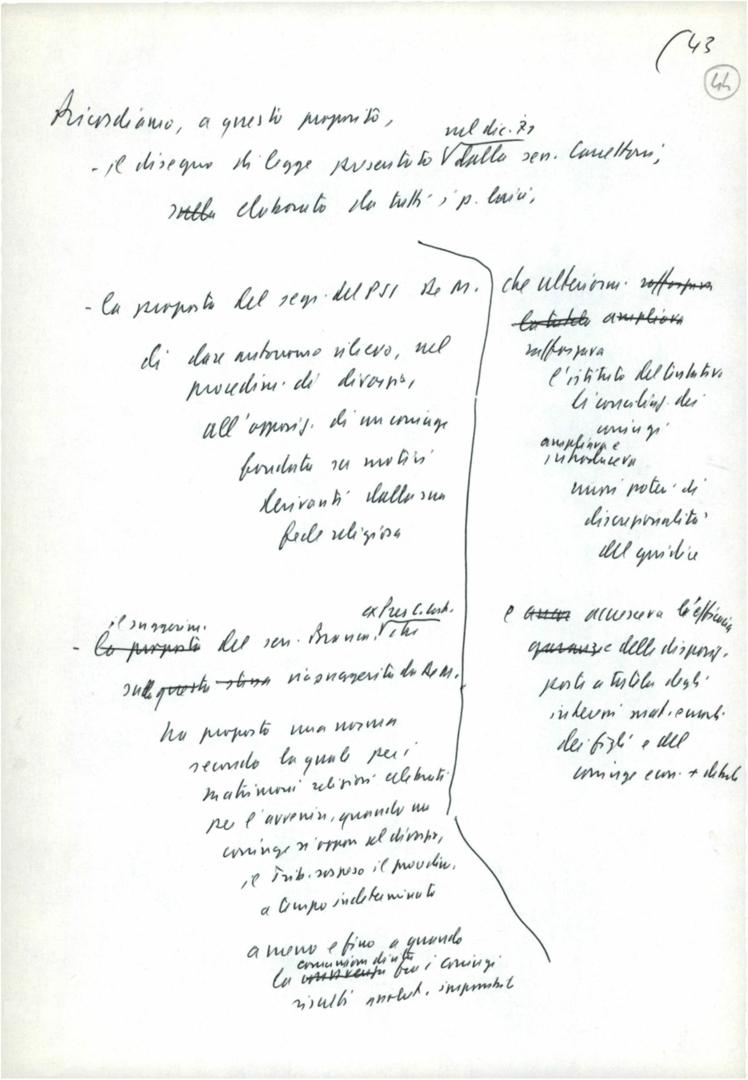 43
44
Ricordiamo, a questo proposito,
nel dic. 72
- il disegno di legge presentato dalla sen. Carettoni,
elaborato da tutti i p. laici,
- la proposta del segr. del PSI De M.
di dare autonomo rilievo, nel
procedim. di divorzio,
all'opposiz. di un coniuge
fondata su motivi
derivanti dalla sua
fede religiosa
il suggerim. ex Pres. C. cost.
- la proposta del sen. Branca, che
sulla questa stessa via suggerita da De M.
ha proposto una norma
secondo la quale per i
matrimoni religiosi celebrati
per l'avvenire, quando un
coniuge si oppon. al divorzio,
il Trib. sospeso il procedim.
a tempo indeterminato
a meno e fino a quando
comunione di vita
la tra i coniugi
risulti impossibil
che ulteriorm. rafforzava
la tutela ampliava
rafforzava
l'istituto del tentativo
di conciliaz. dei
coniugi
ampliava e
introduceva
nuovi poteri di
discrezionalità
del giudice
e accresceva l'efficacia
garanzie delle disposiz.
poste a tutela degli
interessi
dei figli e del
coniuge econ. + debole